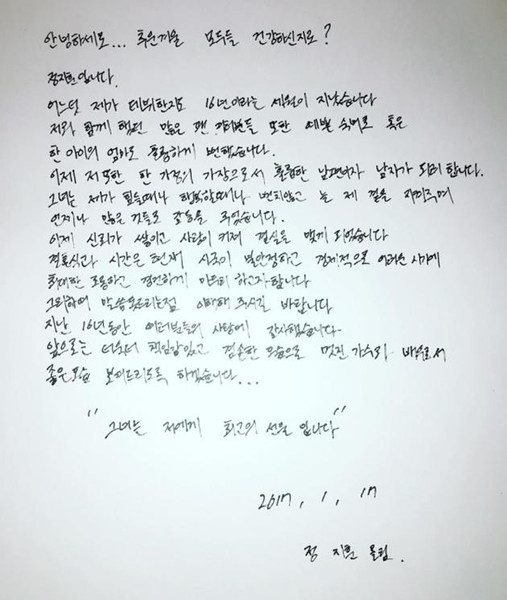 안녕하세요... 추운겨울 모두들 건강하신지요?
정지훈입니다.
어느덧 제가 데뷔한지도 16년이라는 세월이 지났습니다
저와 함께 했던 많은 팬 여러분들 또한 예쁜 숙녀로 혹은
한 아이의 엄마로 훌륭하게 변했습니다.
이제 저 또한 한 가정의 가장으로서 훌륭한 남편이자 남자가 되려 합니다.
그녀는 제가 힘들때나 행복할때나 변치않고 늘 제 곁을 지켜주며
언제나 많은 것들로 감동을 주었습니다.
이제 신뢰가 쌓이고 사랑이 커져 결실을 맺게 되었습니다
결혼식과 시간은 현재 시국이 불안정하고 경제적으로 어려운 시기에
최대한 조용하고 경건하게 치르려 하고자 합니다
그리하여 말씀못드리는점 이해해 주시길 바랍니다
지난 16년동안 여러분들의 사랑에 감사했습니다
앞으로는 더욱더 책임감있고 겸손한 모습으로 멋진 가수와 배우로서
좋은모습 보여드리도록 하겠습니다...
"그녀는 저에게 최고의 선물 입니다"
2017. 1. 17
정 지훈 올림.